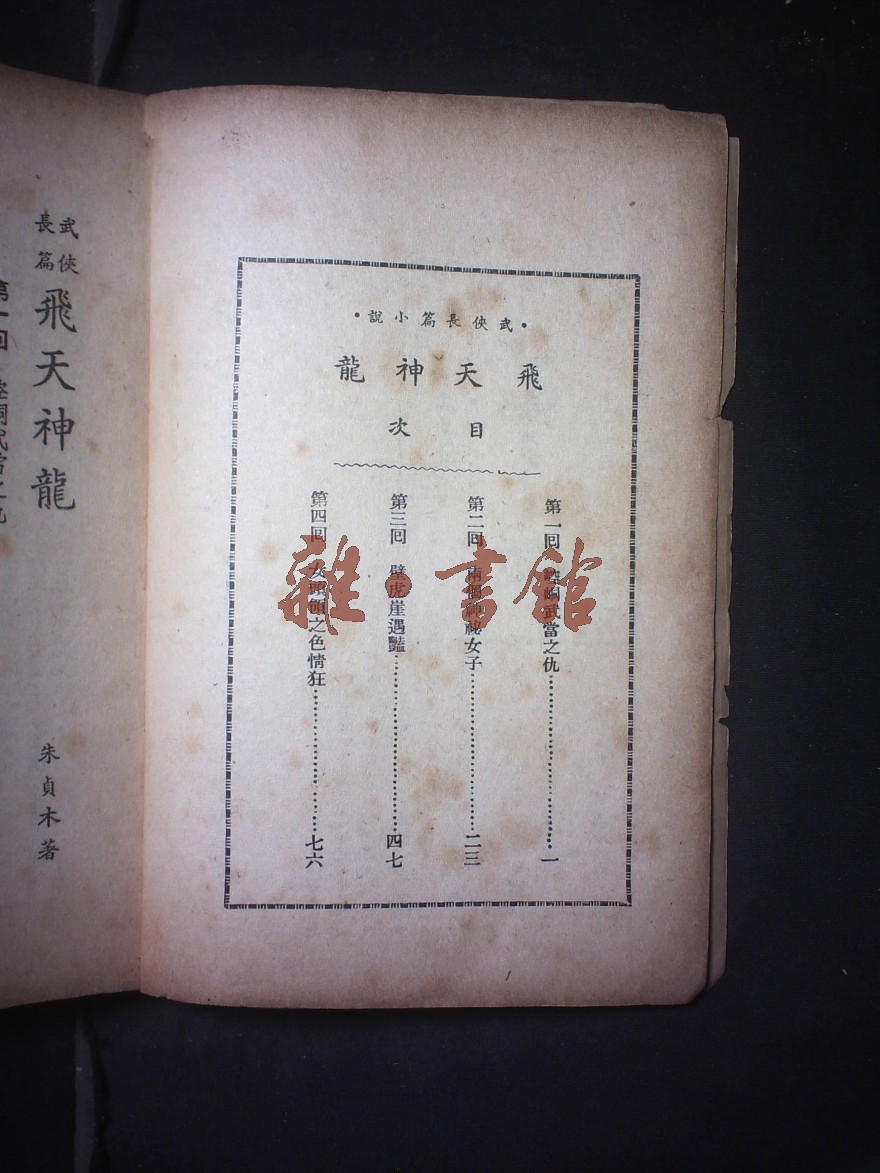 •武俠長篇小說•
飛天神龍
目次
第一回 崆峒武當之仇……………………一
第二回 兩個神祕女子……………………二三
第三回 壁虎崖遇豔……………………四七
第四回 女頭領之色情狂……………………七六
武俠長篇
飛天神龍
朱貞木著
第一回 崆峒武當之仇
雜·書館